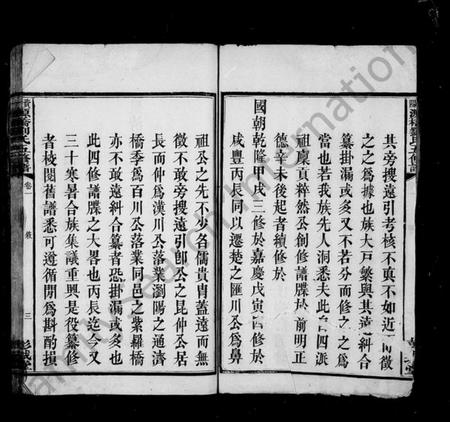 其旁搜遠引考核不真不如近而徵
之之為據也族大戸繁與其遠糾合
纂掛漏或多又不若分而修之之為
當也若我族先人洞悉夫此四派
祖康貞粹然公創修譜牒於前明正
德辛未後起者續修於
國朝乾隆甲戌三修於嘉慶戊寅四修於
咸豐丙辰同以遷楚之匯川公為鼻
祖公之先不少名儒貴胄蓋遠而無
徵不敢旁搜遠引卽公之昆仲公居
長而仲為漢川公落業瀏陽之通濟
橋季為百川公落業同邑之紫羅橋
亦不敢遠糾合纂者恐掛漏或多也
此四修譜牒之大畧也丙辰迄今又
三十寒暑合族集議重興是役纂修
者核閱舊譜悉可遵循間為斟酌損
劉氏五修譜
卷一
三